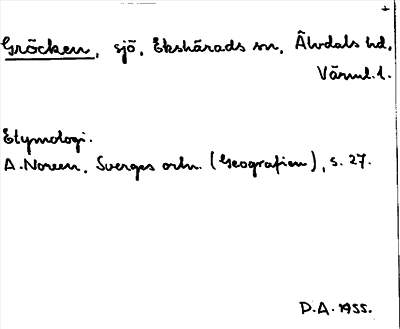 Gröcken, sjö, Ekshärads sn, Älvdals hd,
Värml. l.
Etymologi.
A. Noreen, Sveriges ortn. (Geografien), s. 27.
D.A. 1955.